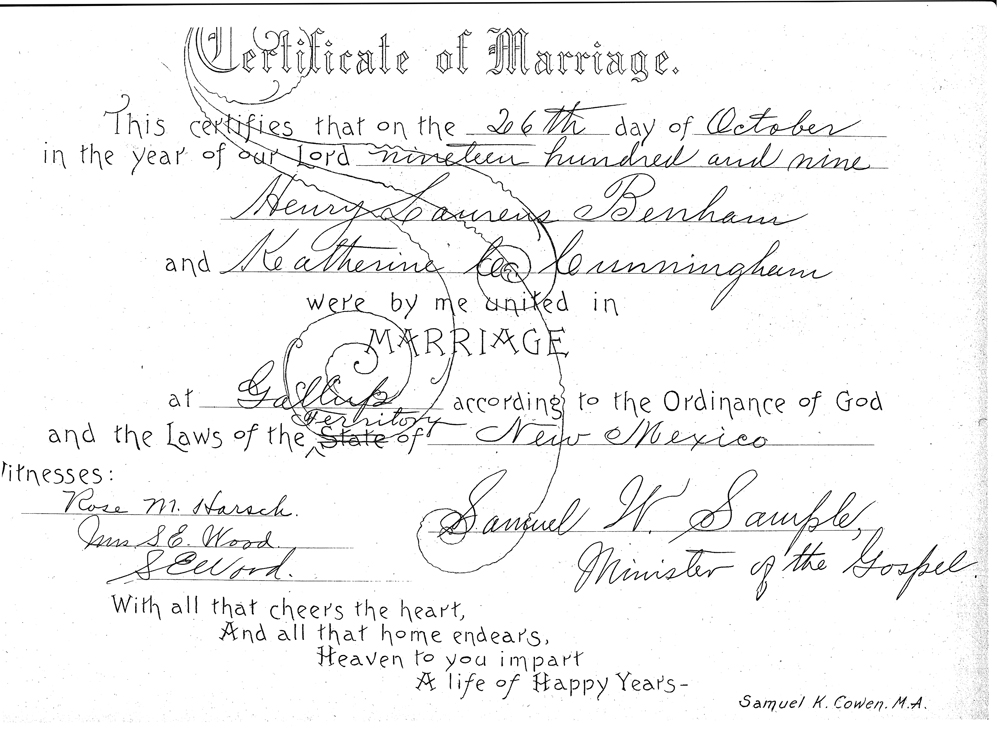 Certificate of Marriage.
This certifies that on the 26th day of October
in the year of our Lord nineteen hundred and nine
Henry Laurens Benham
and Katherine C. Cunningham
were by me united in
MARRIAGE
at Gallup according to the Ordinance of God
Territory
and the Laws of the State of New Mexico
Witnesses:
Rose M. Harsch.
Mrs S.E. Wood
S E Wood.
Samuel W. Sample,
Minister of the Gospel.
With all that cheers the heart,
And all that home endears,
Heaven to you impart
A life of Happy Years-
Samuel K. Cowen. M.A.